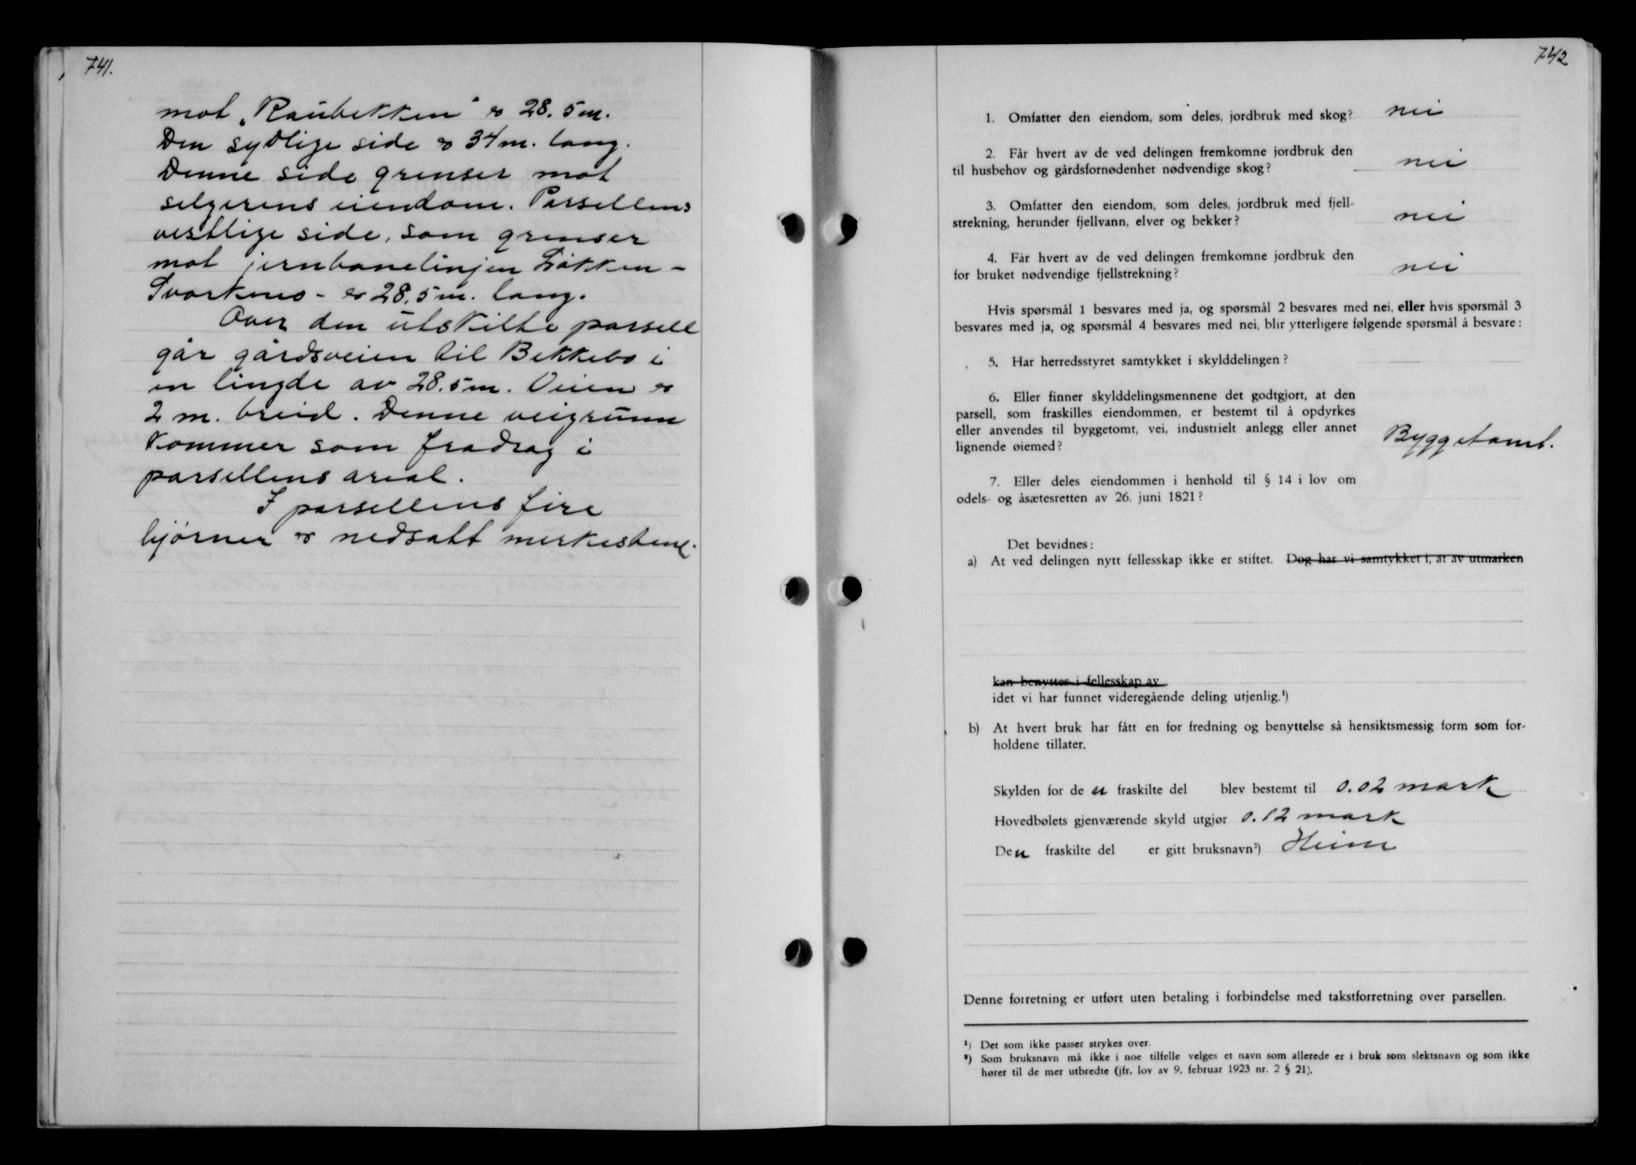 741.
mot „Raubekken" er 28.5 m.
Den sydlige side er 34 m. lang.
Denne side grenser mot
selgerens eiendom. Parsellens
vestlige side, som grenser
mot jernbanelinjen Løkken -
Svorkmo - er 28,5 m. lang.
Over den utskilte parsell
går gårdsveien til Bekkebo i
en lengde av 28.5 m. Veien er
2 m. breid. Denne veigrunn
kommer som fradrag i
parsellens areal.
I parsellens fire
hjørner er nedsatt merkestene.
742
1. Omfatter den eiendom, som deles, jordbruk med skog? nei
2. Får hvert av de ved delingen fremkomne jordbruk den
til husbehov og gårdsfornødenhet nødvendige skog? nei
3. Omfatter den eiendom, som deles, jordbruk med fjell-
strekning, herunder fjellvann, elver og bekker? nei
4. Får hvert av de ved delingen fremkomne jordbruk den
for bruket nødvendige fjellstrekning? nei
Hvis spørsmål 1 besvares med ja, og spørsmål 2 besvares med nei, eller hvis spørsmål 3
besvares med ja, og spørsmål 4 besvares med nei, blir ytterligere følgende spørsmål å besvare:
5. Har herredsstyret samtykket i skylddelingen?
6. Eller finner skylddelingsmennene det godtgjort, at den
parsell, som fraskilles eiendommen, er bestemt til å opdyrkes
eller anvendes til byggetomt, vei, industrielt anlegg eller annet
lignende øiemed? Byggetomt.
7. Eller deles eiendommen i henhold til § 14 i lov om
odels- og åsætesretten av 26. juni 1821?
Det bevidnes:
a) At ved delingen nytt fellesskap ikke er stiftet. Dog har vi samtykket i, at av utmarken
kan benyttes i fellesskap av
idet vi har funnet videregående deling utjenlig.¹)
b) At hvert bruk har fått en for fredning og benyttelse så hensiktsmessig form som for-
holdene tillater.
Skylden for de n fraskilte del blev bestemt til 0.02 mark
Hovedbølets gjenværende skyld utgjør 0.12 mark
Den fraskilte del er gitt bruksnavn²) Heim
Denne forretning er utført uten betaling i forbindelse med takstforretning over parsellen.
¹) Det som ikke passer strykes over.
²) Som bruksnavn må ikke i noe tilfelle velges et navn som allerede er i bruk som slektsnavn og som ikke
hører til de mer utbredte (jfr. lov av 9. februar 1923 nr. 2 § 21).